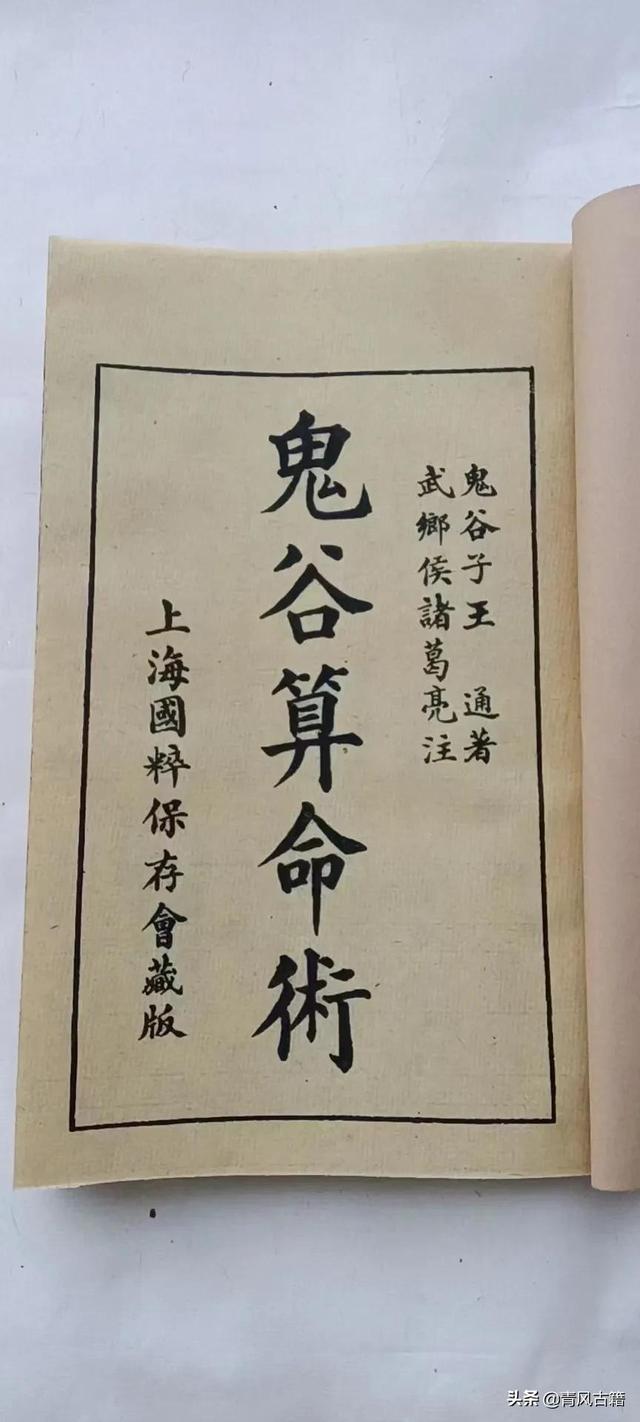 鬼谷子王 通著
武鄉侯諸葛亮注
鬼谷算命術
上海國粹保存會藏版
头条 @青风古籍